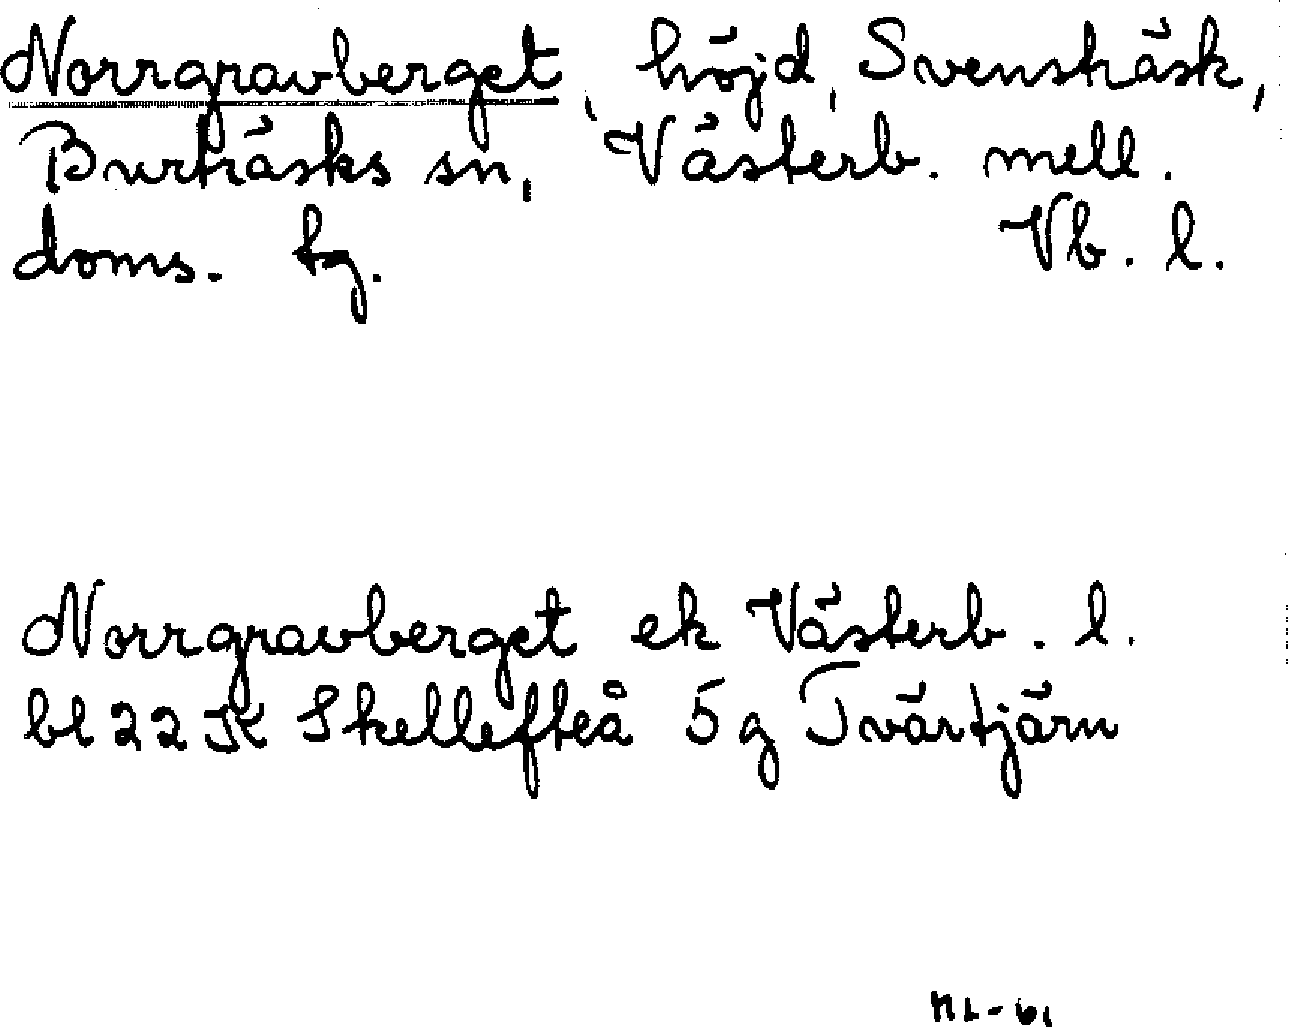 Norrgravberget, höjd, Svensträsk,
Burträsks sn, Västerb. mell.
doms. tg. Vb. l.
Norrgravberget ek Västerb. l.
bl 22 K Skellefteå 5 g Tvärtjärn